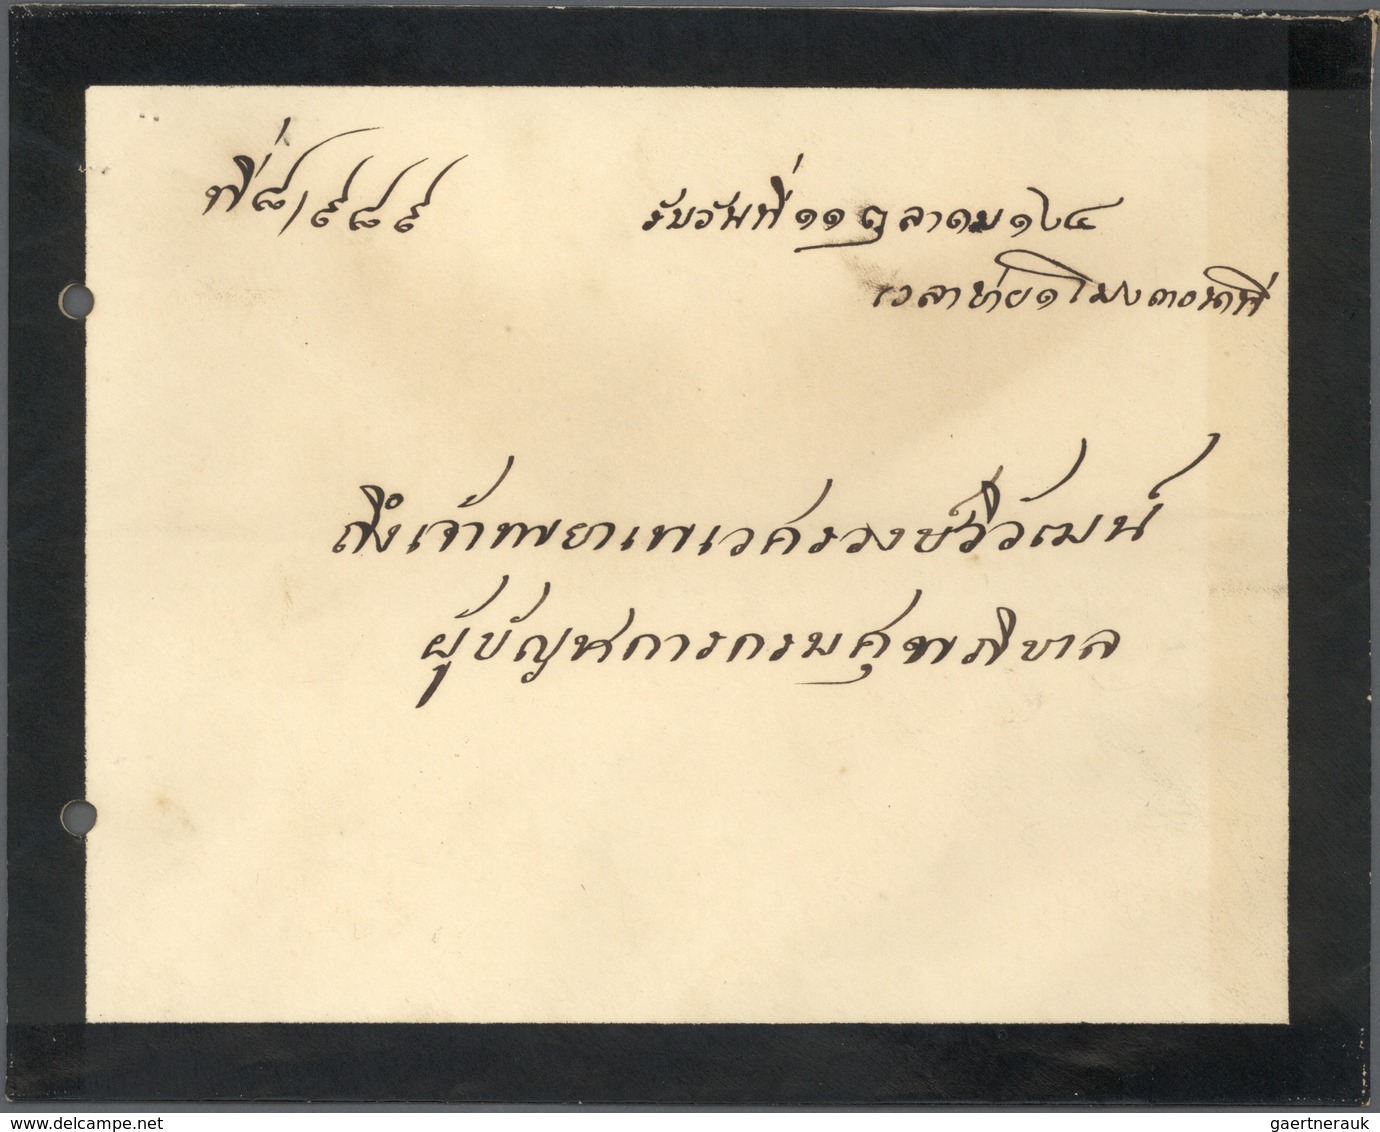 ที่ ๘/๙๘๙
รับวันที่ ๑๑ ตุลาคม ๑๒๔
เวลาบ่าย ๑ โมง ๓๐ นาที
ถึงเจ้าพยาเทเวศรวงษ์วิวัฒน์
ผู้บัญชาการกรมศุขาภิบาล
www.delcampe.net
gaertnerauk